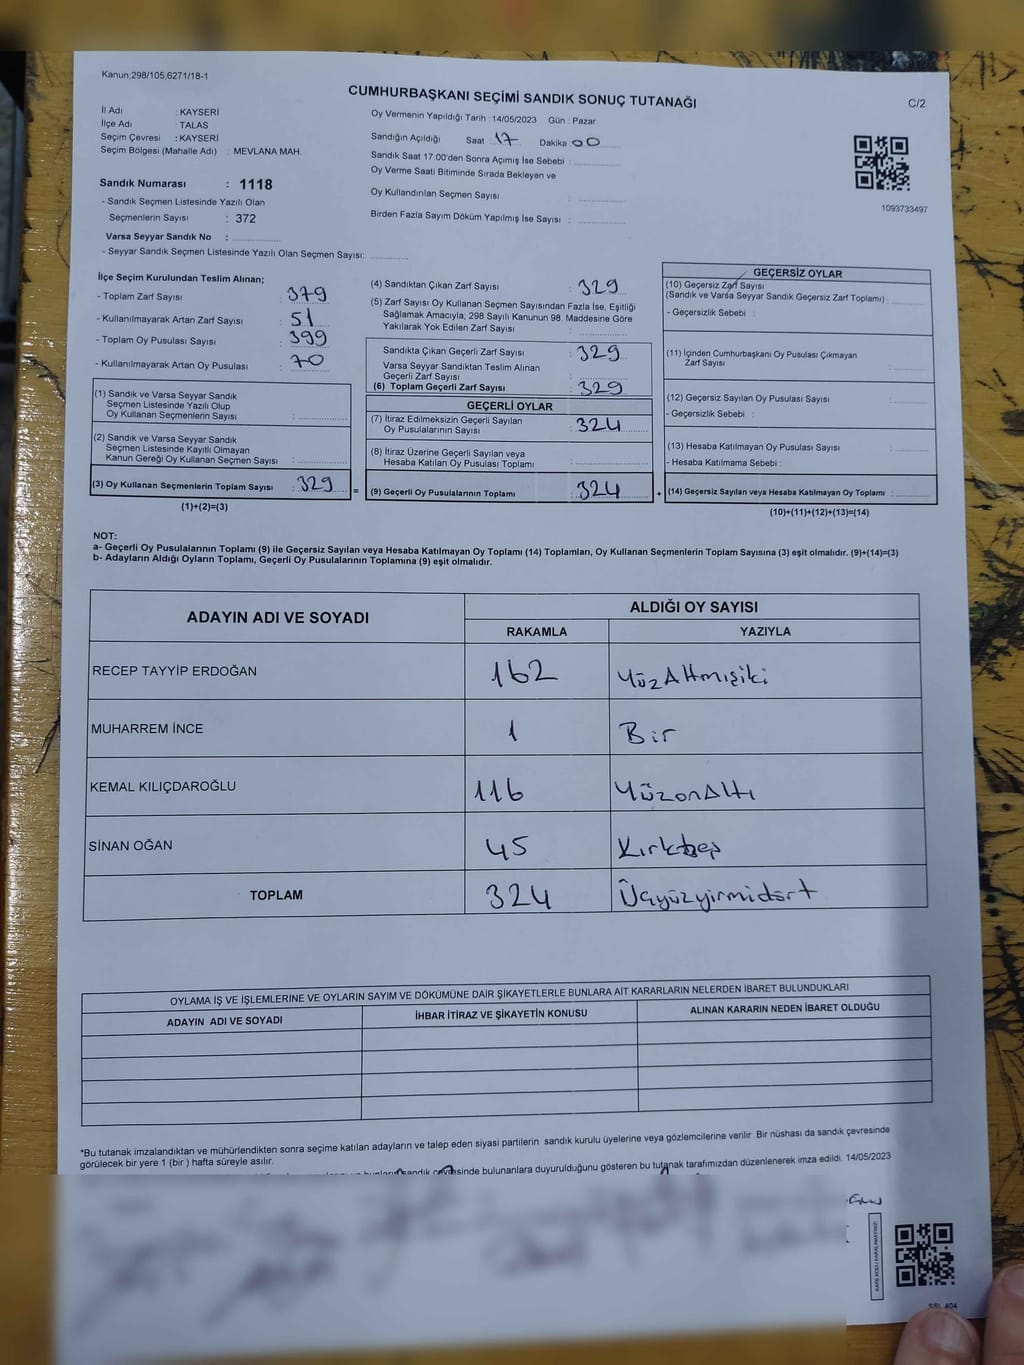 Kanun;298/105,6271/18-1
CUMHURBAŞKANI SEÇİMİ SANDIK SONUÇ TUTANAĞI
C/2
İl Adı : KAYSERİ
İlçe Adı : TALAS
Seçim Çevresi : KAYSERİ
Seçim Bölgesi (Mahalle Adı) : MEVLANA MAH.
Sandık Numarası : 1118
- Sandık Seçmen Listesinde Yazılı Olan
Seçmenlerin Sayısı : 372
Varsa Seyyar Sandık No :
- Seyyar Sandık Seçmen Listesinde Yazılı Olan Seçmen Sayısı:
Oy Vermenin Yapıldığı Tarih :14/05/2023 Gün : Pazar
Sandığın Açıldığı Saat 17 Dakika 00
Sandık Saat 17:00'den Sonra Açımış İse Sebebi :
Oy Verme Saati Bitiminde Sırada Bekleyen ve
Oy Kullandırılan Seçmen Sayısı :
Birden Fazla Sayım Döküm Yapılmış İse Sayısı :
1093733497
İlçe Seçim Kurulundan Teslim Alınan;
- Toplam Zarf Sayısı : 379
- Kullanılmayarak Artan Zarf Sayısı : 51
- Toplam Oy Pusulası Sayısı : 399
- Kullanılmayarak Artan Oy Pusulası : 70
(1) Sandık ve Varsa Seyyar Sandık
Seçmen Listesinde Yazılı Olup
Oy Kullanan Seçmenlerin Sayısı :
(2) Sandık ve Varsa Seyyar Sandık
Seçmen Listesinde Kayıtlı Olmayan
Kanun Gereği Oy Kullanan Seçmen Sayısı :
(3) Oy Kullanan Seçmenlerin Toplam Sayısı : 329
(1)+(2)=(3)
=
(4) Sandıktan Çıkan Zarf Sayısı : 329
(5) Zarf Sayısı Oy Kullanan Seçmen Sayısından Fazla İse, Eşitliği
Sağlamak Amacıyla; 298 Sayılı Kanunun 98. Maddesine Göre
Yakılarak Yok Edilen Zarf Sayısı :
Sandıkta Çıkan Geçerli Zarf Sayısı : 329
Varsa Seyyar Sandıktan Teslim Alınan
Geçerli Zarf Sayısı :
(6) Toplam Geçerli Zarf Sayısı : 329
GEÇERLİ OYLAR
(7) İtiraz Edilmeksizin Geçerli Sayılan
Oy Pusulalarının Sayısı : 324
(8) İtiraz Üzerine Geçerli Sayılan veya
Hesaba Katılan Oy Pusulası Toplamı :
(9) Geçerli Oy Pusulalarının Toplamı : 324
+
GEÇERSİZ OYLAR
(10) Geçersiz Zarf Sayısı
(Sandık ve Varsa Seyyar Sandık Geçersiz Zarf Toplamı) :
- Geçersizlik Sebebi :
(11) İçinden Cumhurbaşkanı Oy Pusulası Çıkmayan
Zarf Sayısı :
(12) Geçersiz Sayılan Oy Pusulası Sayısı :
- Geçersizlik Sebebi :
(13) Hesaba Katılmayan Oy Pusulası Sayısı :
- Hesaba Katılmama Sebebi :
(14) Geçersiz Sayılan veya Hesaba Katılmayan Oy Toplamı :
(10)+(11)+(12)+(13)=(14)
NOT:
a- Geçerli Oy Pusulalarının Toplamı (9) ile Geçersiz Sayılan veya Hesaba Katılmayan Oy Toplamı (14) Toplamları, Oy Kullanan Seçmenlerin Toplam Sayısına (3) eşit olmalıdır. (9)+(14)=(3)
b- Adayların Aldığı Oyların Toplamı, Geçerli Oy Pusulalarının Toplamına (9) eşit olmalıdır.
ADAYIN ADI VE SOYADI
ALDIĞI OY SAYISI
RAKAMLA YAZIYLA
RECEP TAYYİP ERDOĞAN 162 YüzAltmışiki
MUHARREM İNCE 1 Bir
KEMAL KILIÇDAROĞLU 116 YüzonAltı
SİNAN OĞAN 45 Kırkbeş
TOPLAM 324 Üçyüzyirmidört
OYLAMA İŞ VE İŞLEMLERİNE VE OYLARIN SAYIM VE DÖKÜMÜNE DAİR ŞİKAYETLERLE BUNLARA AİT KARARLARIN NELERDEN İBARET BULUNDUKLARI
ADAYIN ADI VE SOYADI İHBAR İTİRAZ VE ŞİKAYETİN KONUSU ALINAN KARARIN NEDEN İBARET OLDUĞU
*Bu tutanak imzalandıktan ve mühürlendikten sonra seçime katılan adayların ve talep eden siyasi partilerin sandık kurulu üyelerine veya gözlemcilerine verilir .Bir nüshası da sandık çevresinde
görülecek bir yere 1 (bir ) hafta süreyle asılır.
sandık çevresinde bulunanlara duyurulduğunu gösteren bu tutanak tarafımızdan düzenlenerek imza edildi. 14/05/2023
KARE KODU KARALAMAYINIZ!
SSL 404